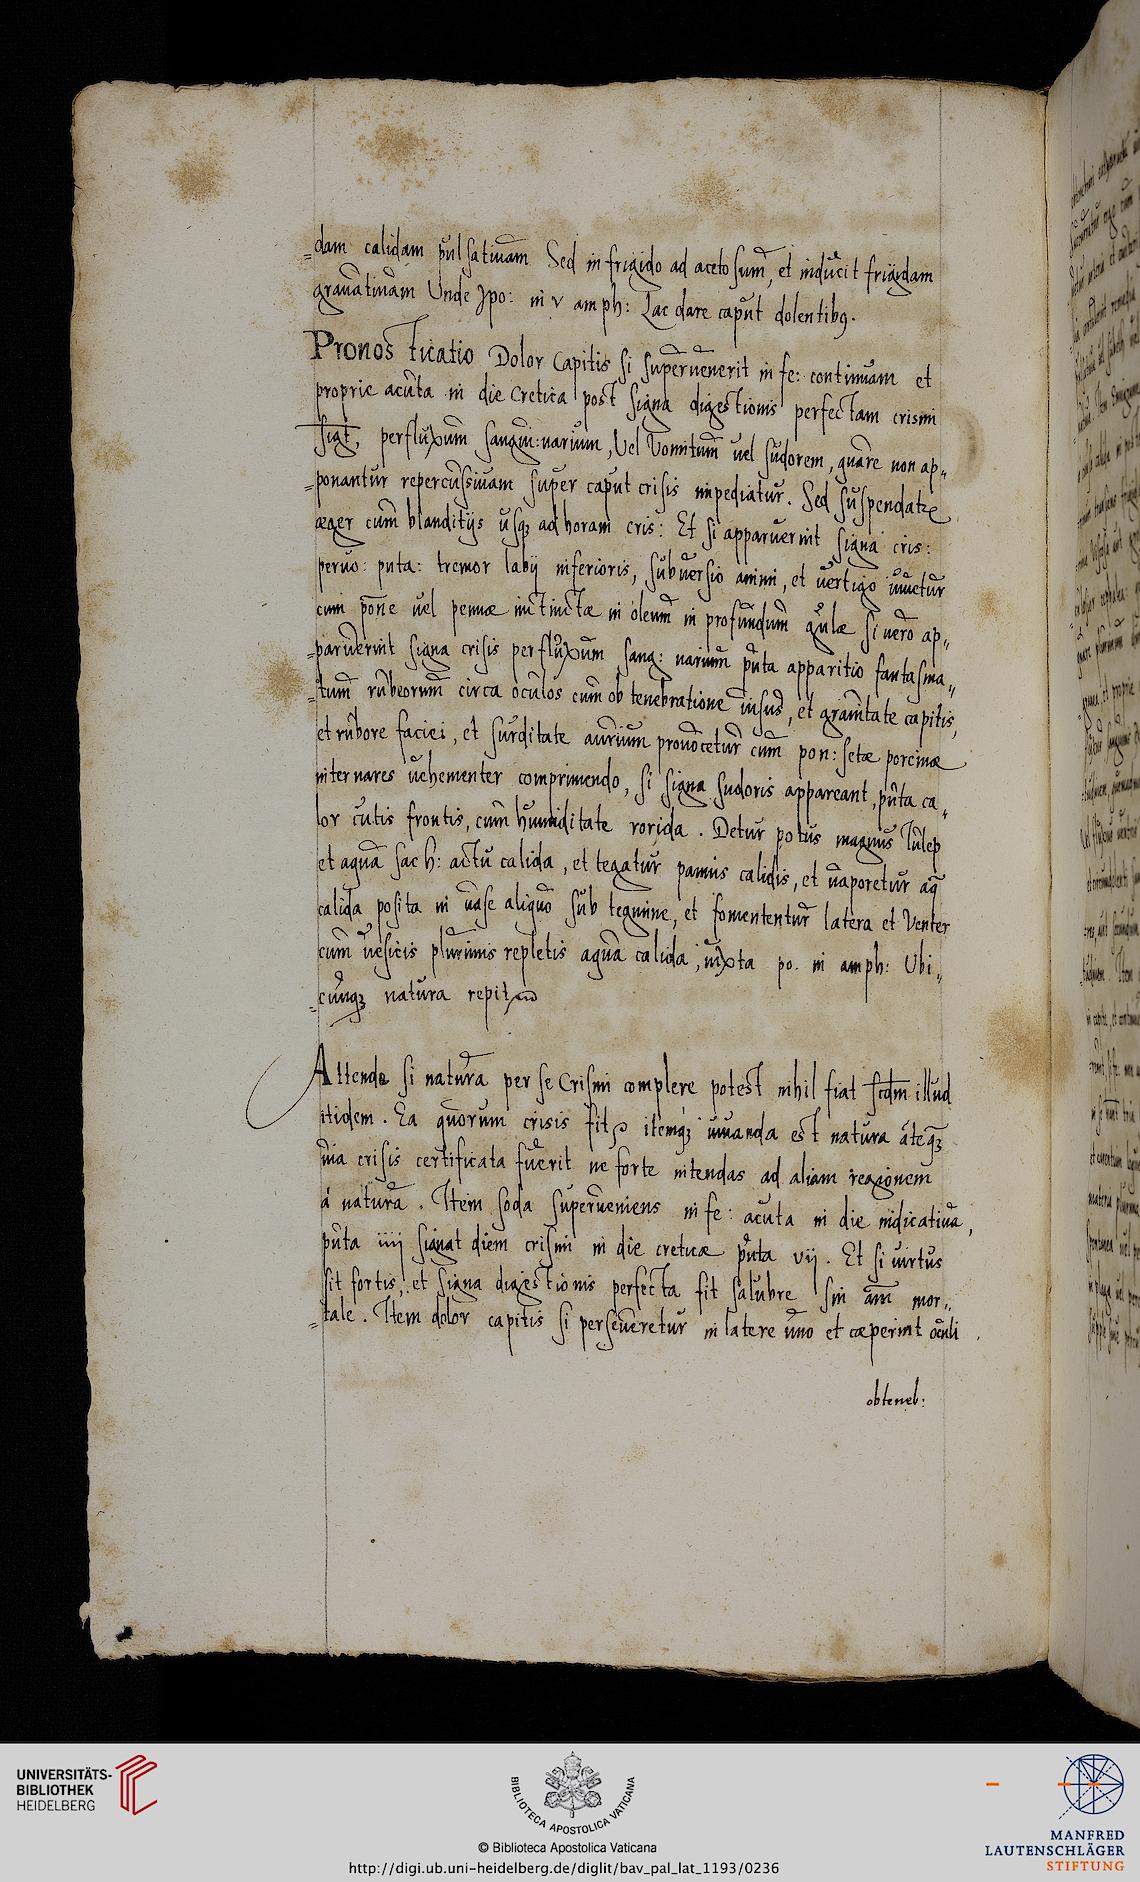 dam calidam pulsatiuam Sed in frigido ad acetosum, et inducit frigidam
grauatiuam Unde Ypo: in v amph: Lac dare caput dolentibꝫ.
Pronosticatio Dolor Capitis si superuenerit in fe: continuam et
proprie acuta in die Cretica post signa digestionis perfectam crisini
sigt, perfluxum sangui:narium, Vel Vomitum uel sudorem, quare non ap„
ponantur repercussiuam super caput crisis impediatur. Sed suspendatr
æger cum blanditijs usqꝫ ad horam cris: Et si apparuerint signa cris:
peruo: puta: tremor labij inferioris, subuersio animi, et uertigo iuuetur
cum pone uel pennæ intinctæ in oleum in profundum gulæ si uero ap„
paruerint signa crisis perfluxum sang: narium puta apparitio fantasma„
tum rubeorum circa oculos cum obtenebratione uisus, et grauitate capitis,
et rubore faciei, et surditate aurium prouocetur cum pon: setæ porcinæ
inter nares uehementer comprimendo, si signa sudoris appareant, puta ca„
lor cutis frontis, cum humiditate rorida. Detur potus magnus Iulep
et aqua sach: actu calida, et tegatur pannis calidis, et uaporetur aq̃
calida posita in uase aliquo sub tegmine, et fomententur latera et Venter
cum uesicis plurimis repletis aqua calida, iuxta po. in amph: Ubi„
cunqꝫ natura repit
Attende si natura per se Crisini complere potest nihil fiat scdm illud
itidem. Ea quorum crisis fit itemqꝫ iuuanda est natura
crisis certificata fuerit ne forte intendas ad aliam regionem
á natura. Item soda superueniens in fe: acuta in die indicatiua,
puta iiij signat diem crisini in die creticæ puta vij. Et si uirtus
sit fortis, et signa digestionis perfecta fit salubre sin am̃ mor„
tale. Item dolor capitis si perseueretur in latere uno et cæperint oculi
obteneb:
UNIVERSITÄTS-
BIBLIOTHEK
HEIDELBERG
BIBLIOTECA APOSTOLICA VATICANA
© Biblioteca Apostolica Vaticana
http://digi.ub.uni-heidelberg.de/diglit/bav_pal_lat_1193/0236
MANFRED
LAUTENSCHLÄGER
STIFTUNG